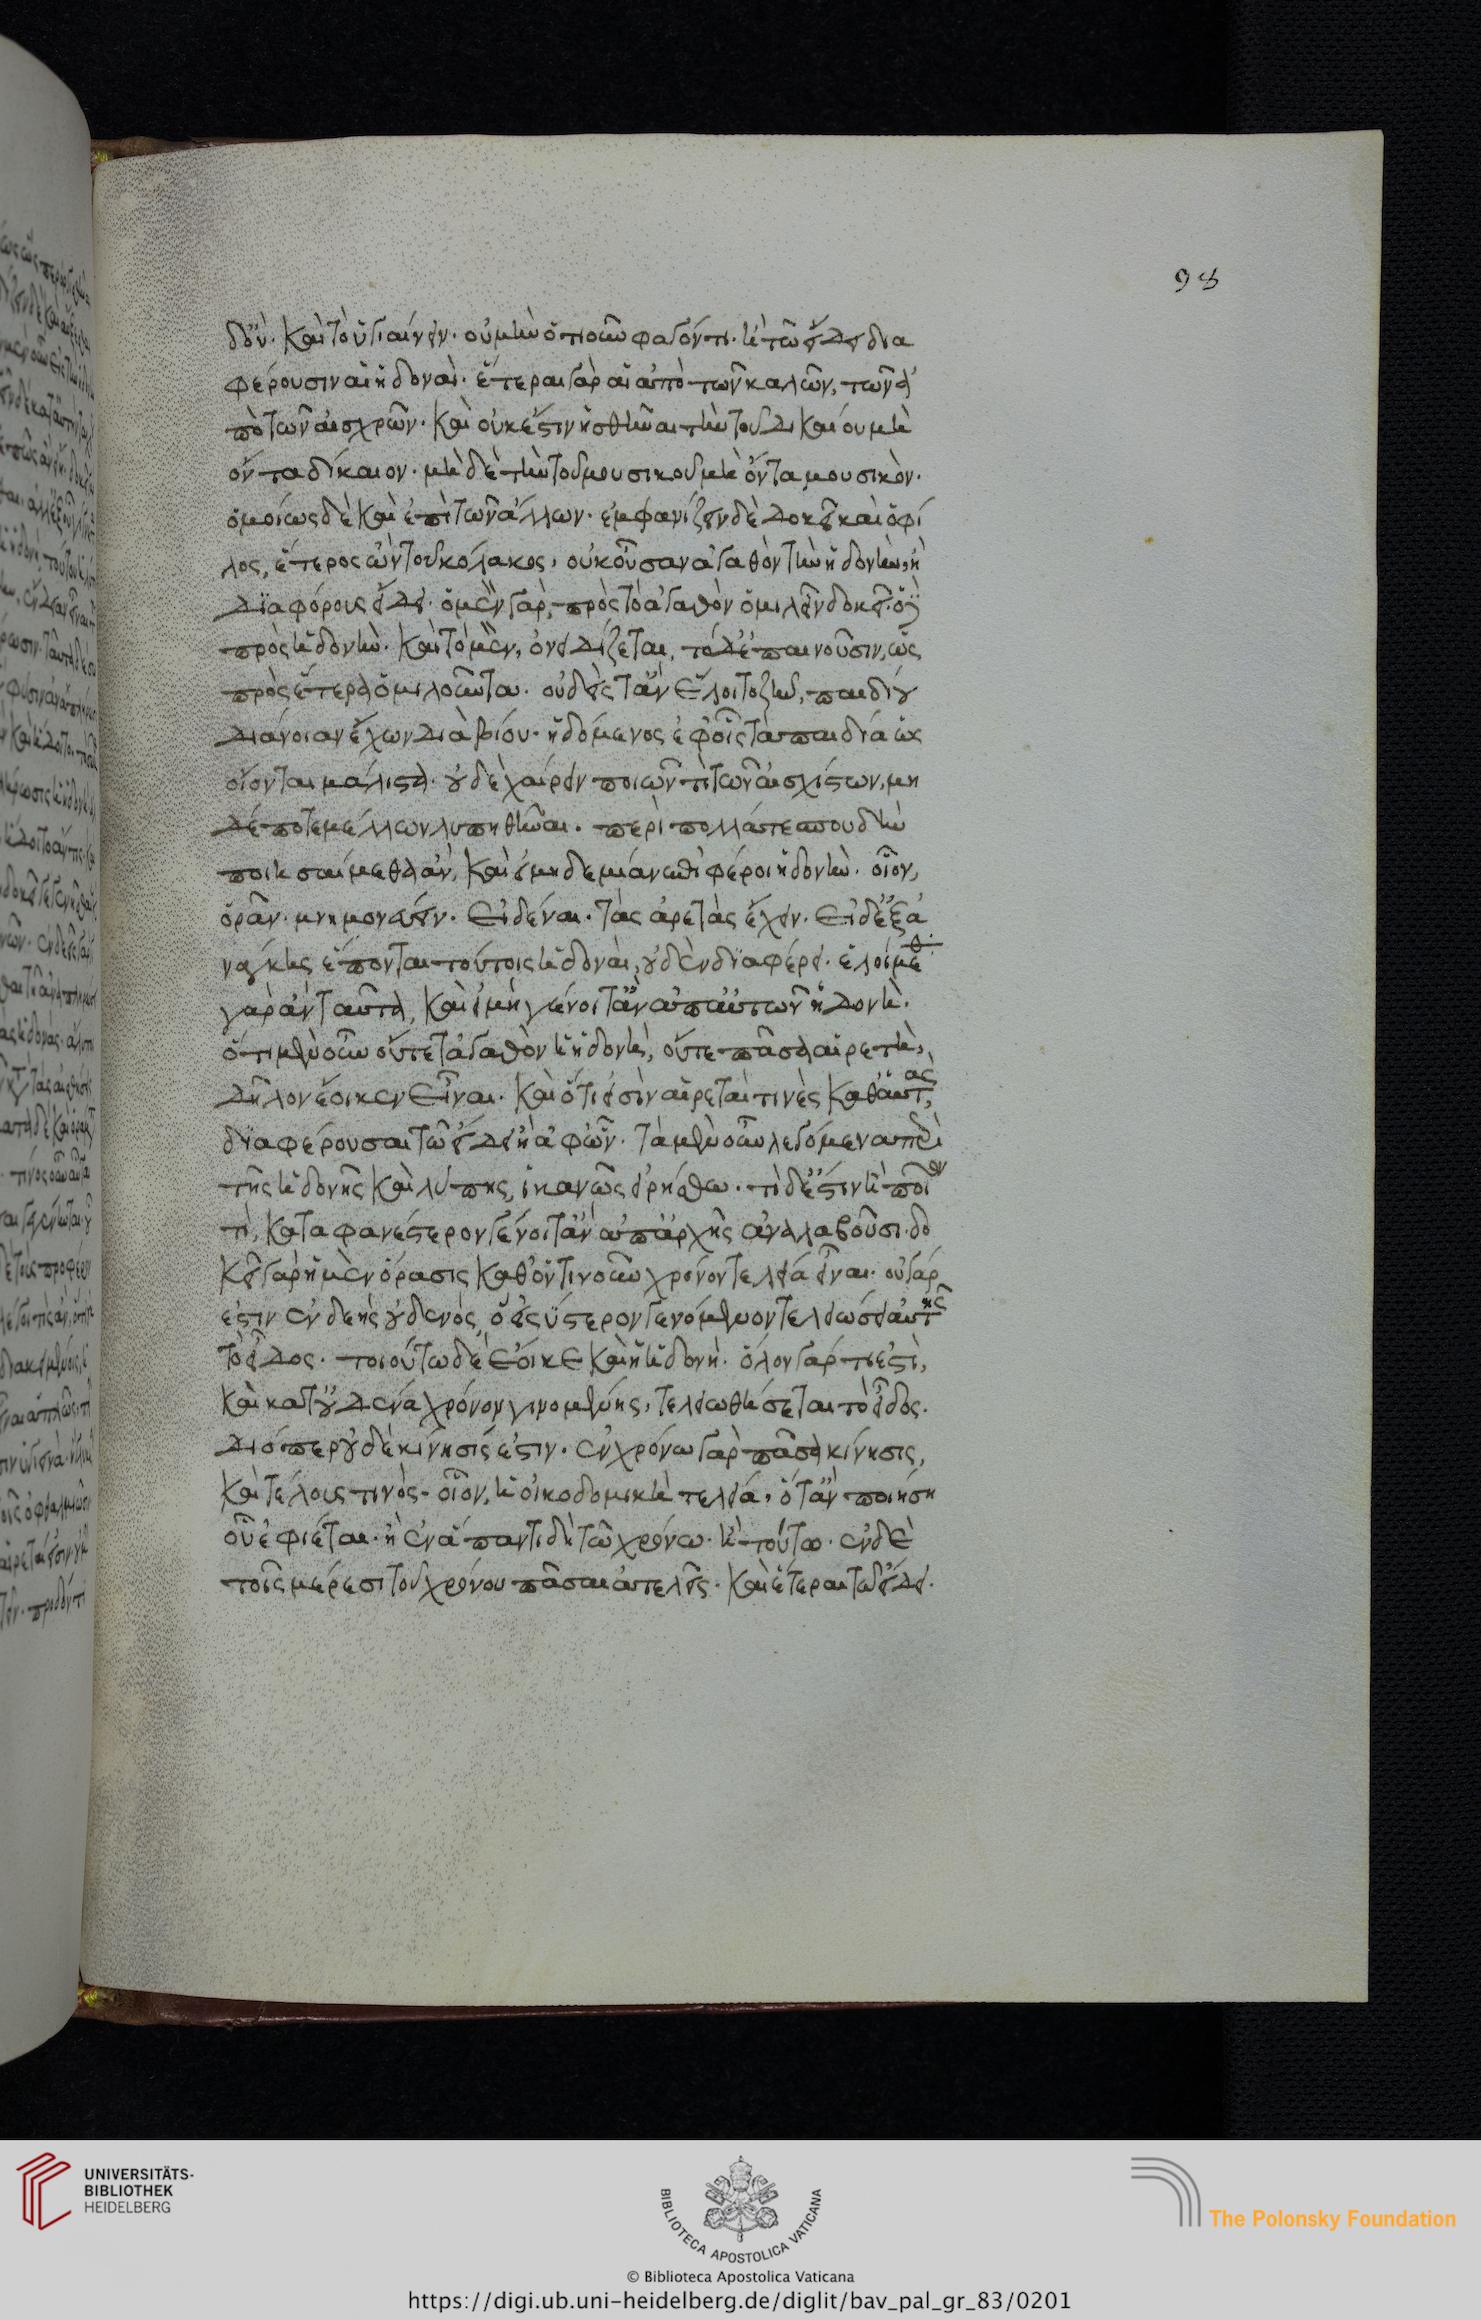 98
δόντι. καὶ τὸ ὑγιαίνειν. οὐ μὴν ὁτιοῦν φαγόντι. ἢ τῶ εἴδει δια
φέρουσιν αἱ ἡδοναί. ἕτεραι γὰρ αἱ ἀπὸ τῶν καλῶν, τῶν ἀ
πὸ τῶν αἰσχρῶν. καὶ οὐκ ἔστιν ἡσθῆναι τὴν τοῦ δικαίου μὴ
ὄντα δίκαιον. μὴ δὲ τὴν τοῦ μουσικοῦ μὴ ὄντα μουσικὸν.
ὁμοίως δὲ καὶ ἐπὶ τῶν ἄλλων. ἐμφανίζειν δὲ δοκεῖ καὶ ὁ φί
λος, ἕτερος ὢν τοῦ κόλακος, οὐκ οὖσαν ἀγαθὸν τὴν ἡδονὴν, ἢ
διαφόρους εἴδει. ὁ μὲν γὰρ, πρὸς τὸ ἀγαθὸν ὁμιλεῖν δοκεῖ. ὁ δὲ
πρὸς ἡδονὴν. καὶ τὸ μὲν, ὀνειδίζεται, τὸ δ' ἐπαινοῦσιν, ὡς
πρὸς ἕτερα ὁμιλοῦντα. οὐδείς τ' ἂν ἕλοιτο ζῆν, παιδίου
διάνοιαν ἔχων διὰ βίου. ἡδόμενος ἐφ' οἷς τὰ παιδία ὡς
οἴονται μάλιστα. οὐδὲ χαίρειν ποιῶν τὶ τῶν αἰσχίστων, μη
δέποτε μέλλων λυπηθῆναι. περὶ πολλά τε σπουδὴν
ποιησαίμεθα ἂν, καὶ εἰ μηδεμίαν ἐπιφέροι ἡδονὴν. οἷον,
ὁρᾶν. μνημονεύειν. εἰδέναι. τὰς ἀρετὰς ἔχειν. εἰ δ' ἐξ ἀ
νάγκης ἕπονται τούτοις ἡδοναὶ, οὐδὲν διαφέρει. ἑλοίμεθ
γὰρ ἂν ταῦτα, καὶ εἰ μὴ γένοιτ' ἂν ἀπ' αὐτῶν ἡδονὴ.
ὅτι μὲν οὖν οὔτε τ' ἀγαθὸν ἡ ἡδονὴ, οὔτε πᾶσα αἱρετὴ,
δῆλον ἔοικεν εἶναι. καὶ ὅτι εἰσὶν αἱρεταὶ τινὲς καθ' αὑτὰς,
διαφέρουσαι τῶ εἴδει ἢ ἀφ' ὧν. τὰ μὲν οὖν λεγόμενα περὶ
τῆς ἡδονῆς καὶ λύπης, ἱκανῶς εἰρήσθω. τὶ δ' ἐστὶν ἢ ποῖον
τὶ, καταφανέστερον γένοιτ' ἂν ἀπ' ἀρχῆς ἀναλαβοῦσι. δο
κεῖ γὰρ ἡ μὲν ὅρασις καθ' ὅντινοῦν χρόνον τελεία εἶναι. οὐ γάρ
ἐστιν ἐνδεὴς οὐδενὸς, ὃ εἰς ὕστερον γενόμενον τελειώσει αὐτῆς
τὸ εἶδος. τοιούτω δὲ ἔοικε καὶ ἡ ἡδονὴ. ὅλον γάρ τι ἐστὶ,
καὶ κατ' οὐδένα χρόνον γινομένης, τελειωθήσεται τὸ εἶδος.
διόπερ οὐδὲ κίνησίς ἐστιν. ἐν χρόνω γὰρ πᾶσα κίνησις,
καὶ τέλους τινὸς. οἷον, ἡ οἰκοδομικὴ τελεία, ὅτ' ἂν ποιήση
οὗ ἐφιέται. ἢ ἐν ἅπαντι δὴ τῶ χρόνω. ἢ τούτω. ἐν δὲ
τοῖς μέρεσι τοῦ χρόνου πᾶσαι ἀτελεῖς. καὶ ἕτεραι τῶ εἴδει.
UNIVERSITÄTS-
BIBLIOTHEK
HEIDELBERG
BIBLIOTECA APOSTOLICA VATICANA
The Polonsky Foundation
© Biblioteca Apostolica Vaticana
https://digi.ub.uni-heidelberg.de/diglit/bav_pal_gr_83/0201